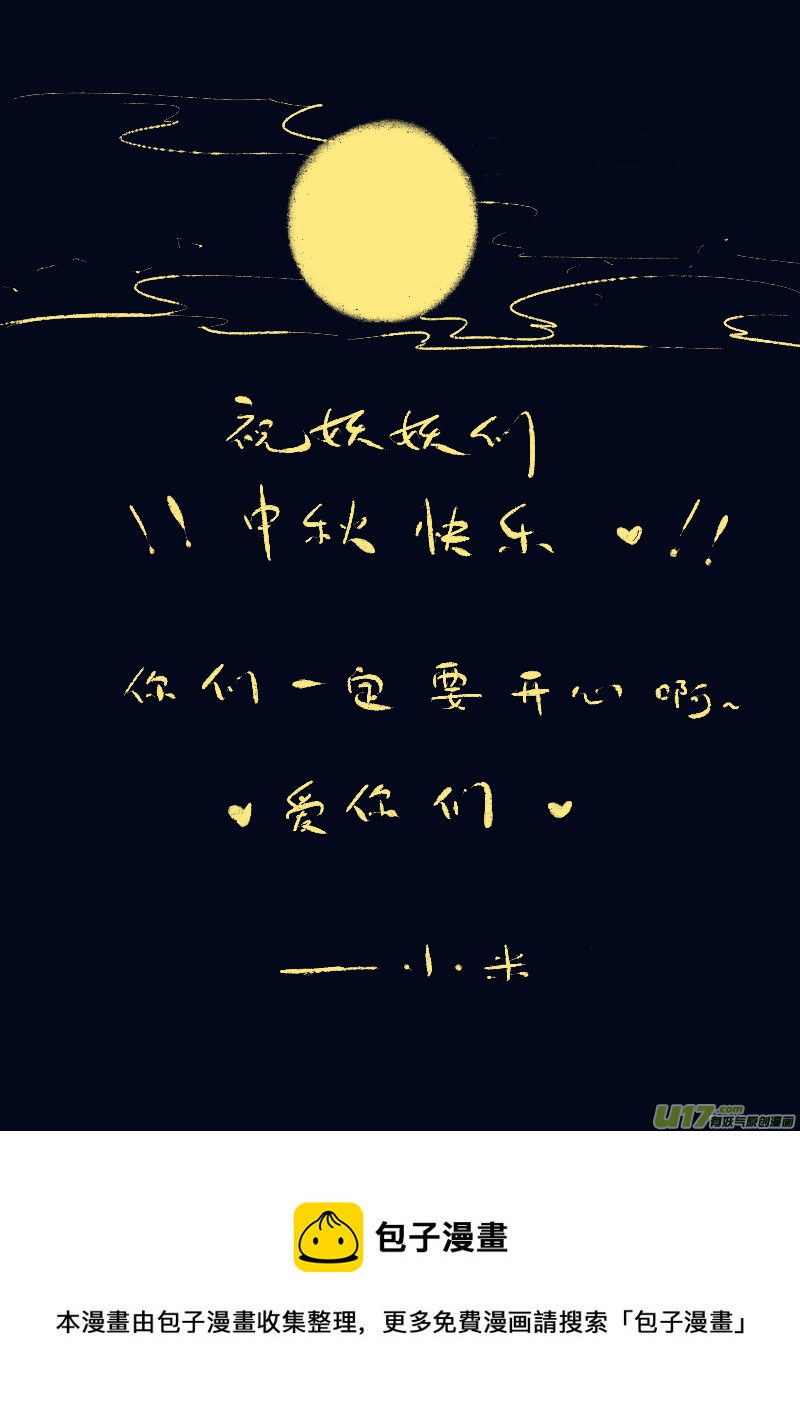 祝妖妖们
!! 中秋快乐 ♥ !!
你们一定要开心啊~
♥ 爱你们 ♥
——·小·米
U17.com
有妖气原创漫画
包子漫畫
本漫畫由包子漫畫收集整理，更多免費漫画請搜索「包子漫畫」